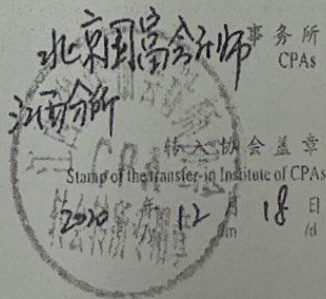 北京国富会计师事务所
CPAs
江西分所
转入协会盖章
Stamp of the transfer-in Institute of CPAs
2020年12月18日
/m /d